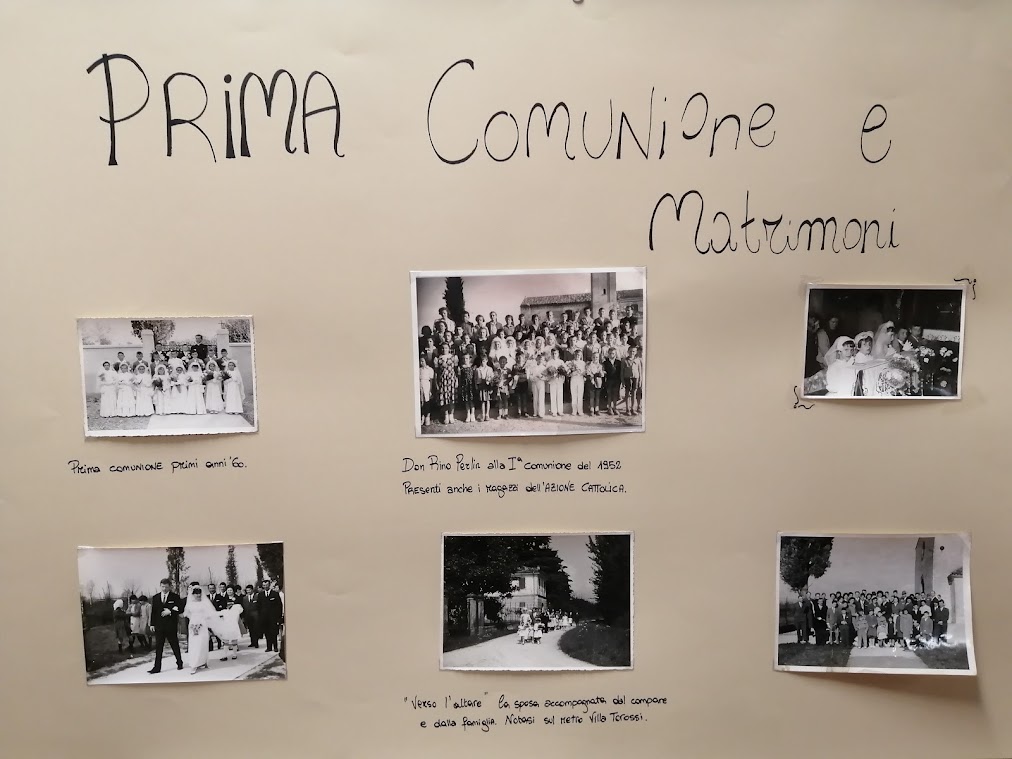 PRIMA COMUNIONE e
Matrimoni
Prima comunione primi anni '60.
Don Rino Perlin alla Iª comunione del 1952
Presenti anche i ragazzi dell'AZIONE CATTOLICA.
"Verso l'altare" la sposa accompagnata dal compare
e dalla famiglia. Notasi sul retro Villa Torossi.